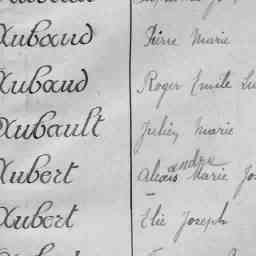 Aubaud Pierre Marie
Aubaud Roger Emile
Aubault Julien Marie
andre
Aubert Alexis Marie
Aubert Elie Joseph